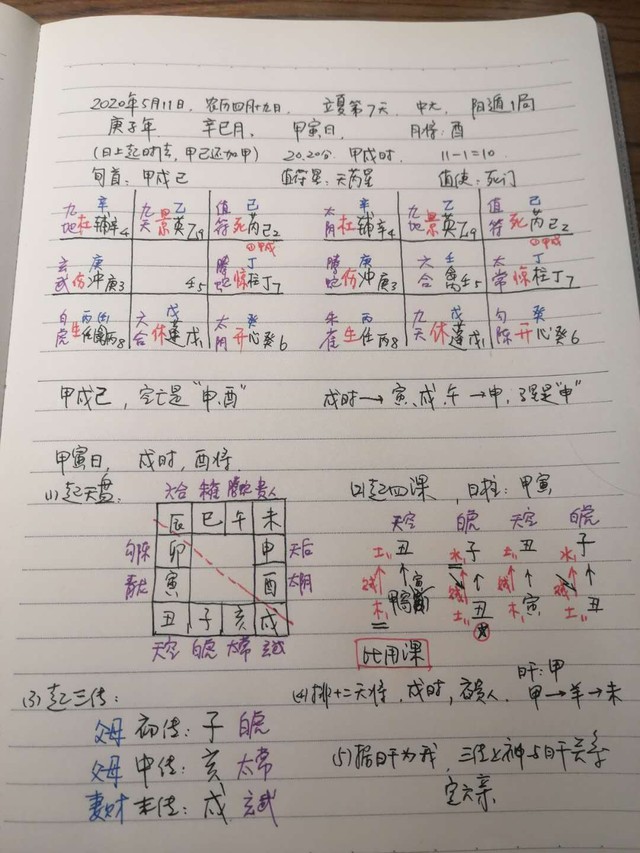 2020年5月11日, 农历四月十九日, 立夏第7天, 中元, 阳遁1局
庚子年 辛巳月, 甲寅日, 月将:酉
(日上起时法,甲己还加甲) 20.20分. 甲戌时, 11-1=10.
旬首:甲戌己 值符星:天芮星 值使:死门
辛 乙 己 辛 乙 己
九地 杜 辅辛4 九天 景 英乙9 值符 死 芮己2 太阴 杜 辅辛4 九天 景 英乙9 值符 死 芮己2
庚 丁 ⊕甲戌 庚 壬 丁 ⊕甲戌
玄武 伤 冲庚3 壬5 螣蛇 惊 柱丁7 螣蛇 伤 冲庚3 六合 禽壬5 太常 惊 柱丁7
丙 戊 癸 丙 戊 癸
白虎 生 任 丙8 六合 休 蓬戊1 太阴 开 心癸6 朱雀 生 任丙8 九天 休 蓬戊1 勾陈 开 心癸6
甲戌己, 空亡是“申、酉” 戌时→寅、戌、午→申, 马星是“申”
甲寅日, 戌时, 酉将.
(1)起天盘: (2)起四课, 日柱:甲寅
六合 朱雀 螣蛇 贵人 天空 白虎 天空 白虎
辰 巳 午 未 土 丑 水 子 土 丑 水 子
勾陈 卯 申 天后
青龙 寅 酉 太阴 木 甲 寅 土 丑 木 寅 土 丑
丑 子 亥 戌
天空 白虎 太常 玄武 比用课
(3)起三传: (4)排十二天将, 戌时, 夜贵人. 日干:甲 甲→羊→未
父母 初传: 子 白虎
父母 中传: 亥 太常 (5)据日干为我, 三传上神与日干关系
定六亲
妻财 末传: 戌 玄武